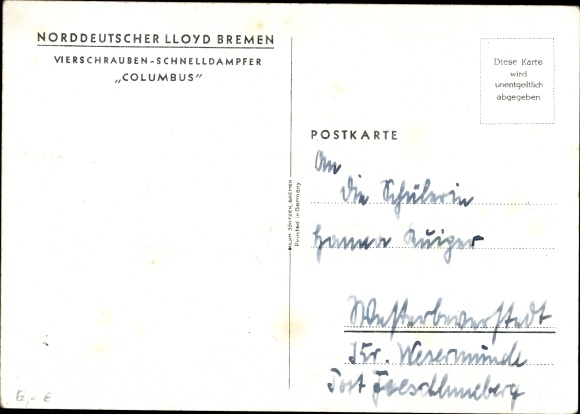 NORDDEUTSCHER LLOYD BREMEN
VIERSCHRAUBEN-SCHNELLDAMPFER
„COLUMBUS"
Diese Karte
wird
unentgeltlich
abgegeben
POSTKARTE
BREMEN
Printed in Germany
An
die Schülerin
Hanna
Westerbeverstedt
Kr. Wesermünde
Post